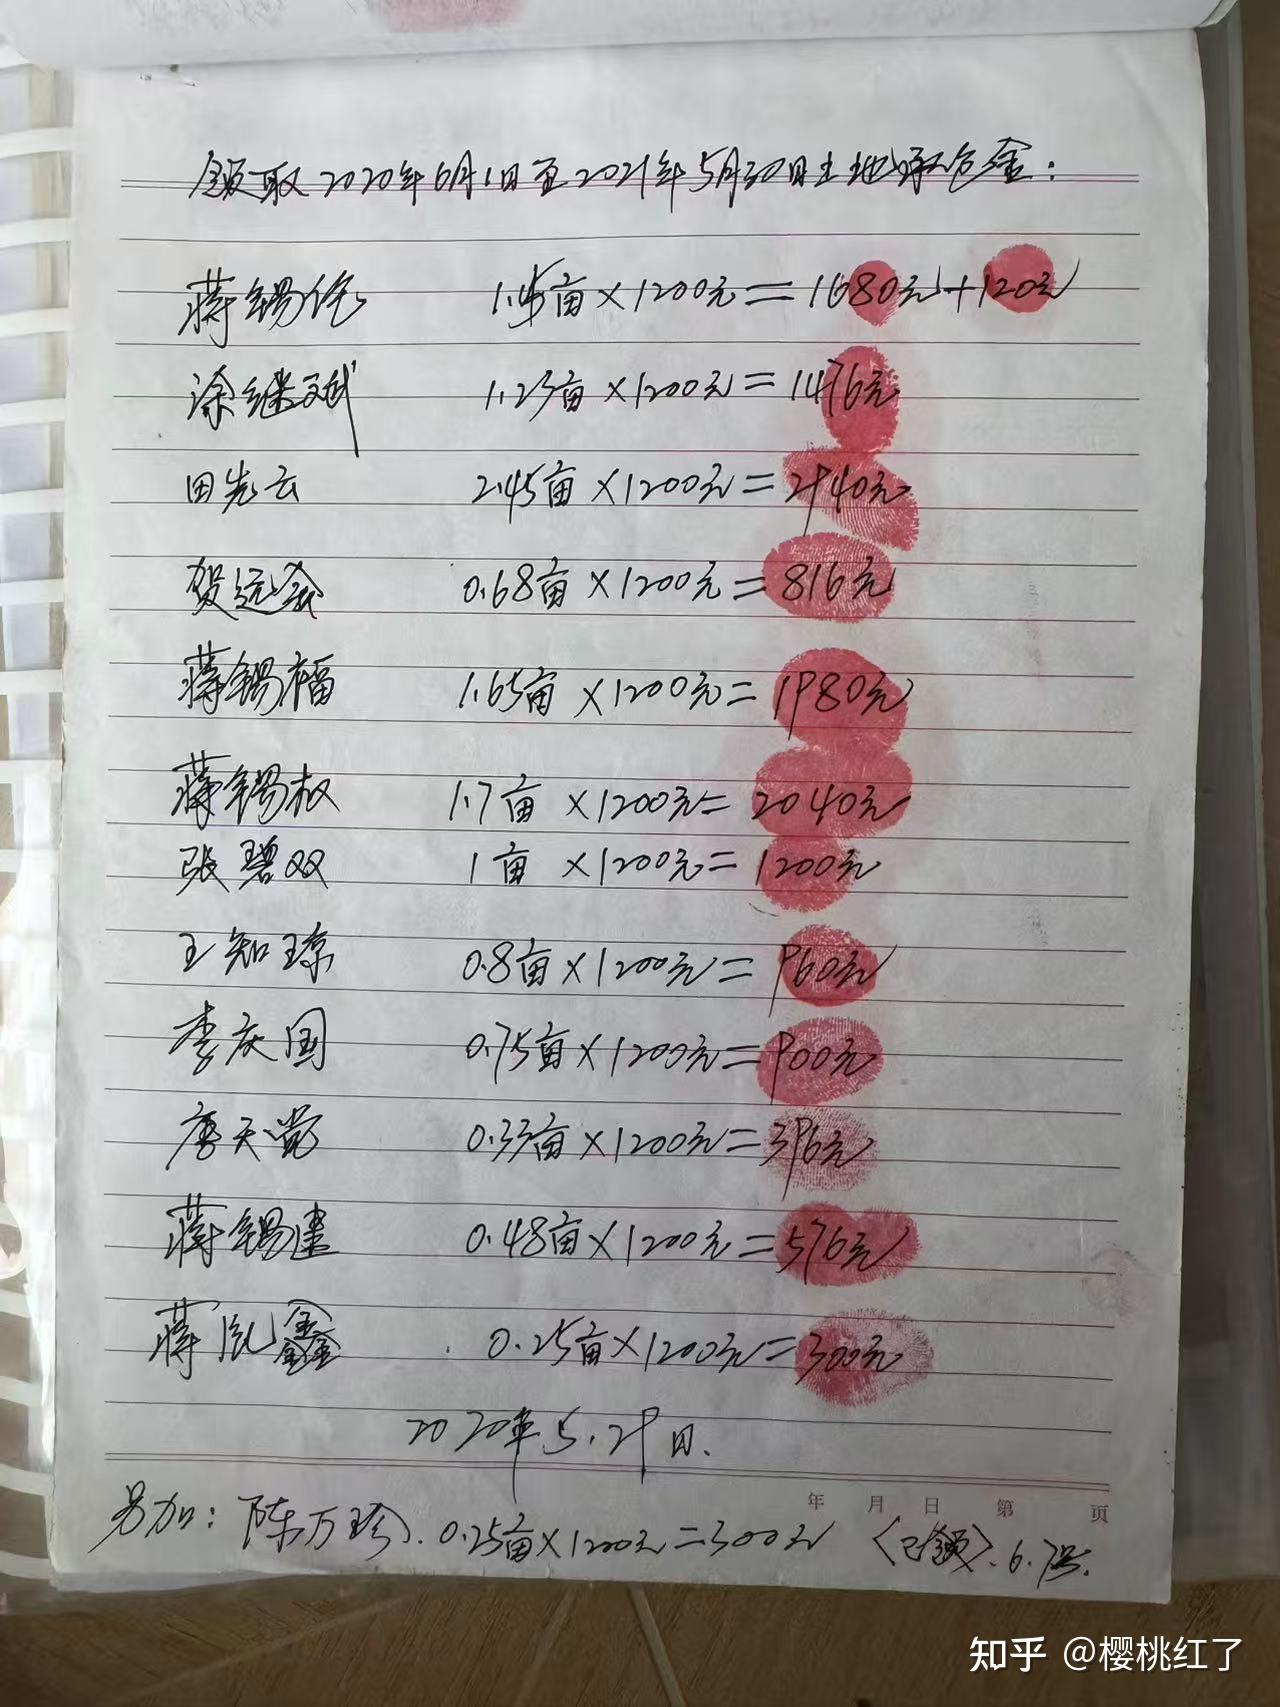 领取2020年6月1日至2021年5月30日土地承包金:
蒋锡伦 1.45亩×1200元=1680元+120元
涂继斌 1.23亩×1200元=1476元
田先云 2.45亩×1200元=2940元
贺远会 0.68亩×1200元=816元
蒋锡福 1.65亩×1200元=1980元
蒋锡权 1.7亩×1200元=2040元
张碧双 1亩×1200元=1200元
王知琼 0.8亩×1200元=960元
李庆国 0.75亩×1200元=900元
唐天党 0.33亩×1200元=396元
蒋锡建 0.48亩×1200元=576元
蒋胤鑫 0.25亩×1200元=300元
2020年5.29日.
年 月 日 第 页
另加:陈万珍.0.25亩×1200元=300元〈已领〉.6.7号.
知乎 @樱桃红了